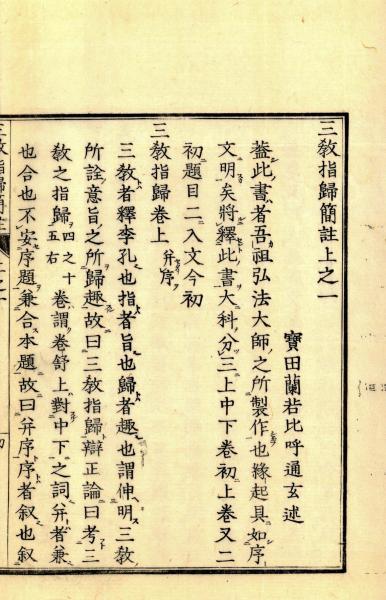 三敎指歸簡註上之一
寶田蘭若比呼通玄述
葢此書者吾祖弘法大師之所製作也緣起具如序
文明矣將釋此書大科分三上中下卷初上卷又二
初題目二入文今初
三敎指歸卷上并序
三敎者釋李孔也指者旨也歸者趣也謂伸明三敎
所詮意旨之所歸趣故曰三敎指歸辯正論曰考三
敎之指歸四之十五右卷謂卷舒上對中下之詞并者兼
也合也不安序題兼合本題故曰并序序者叙也叙